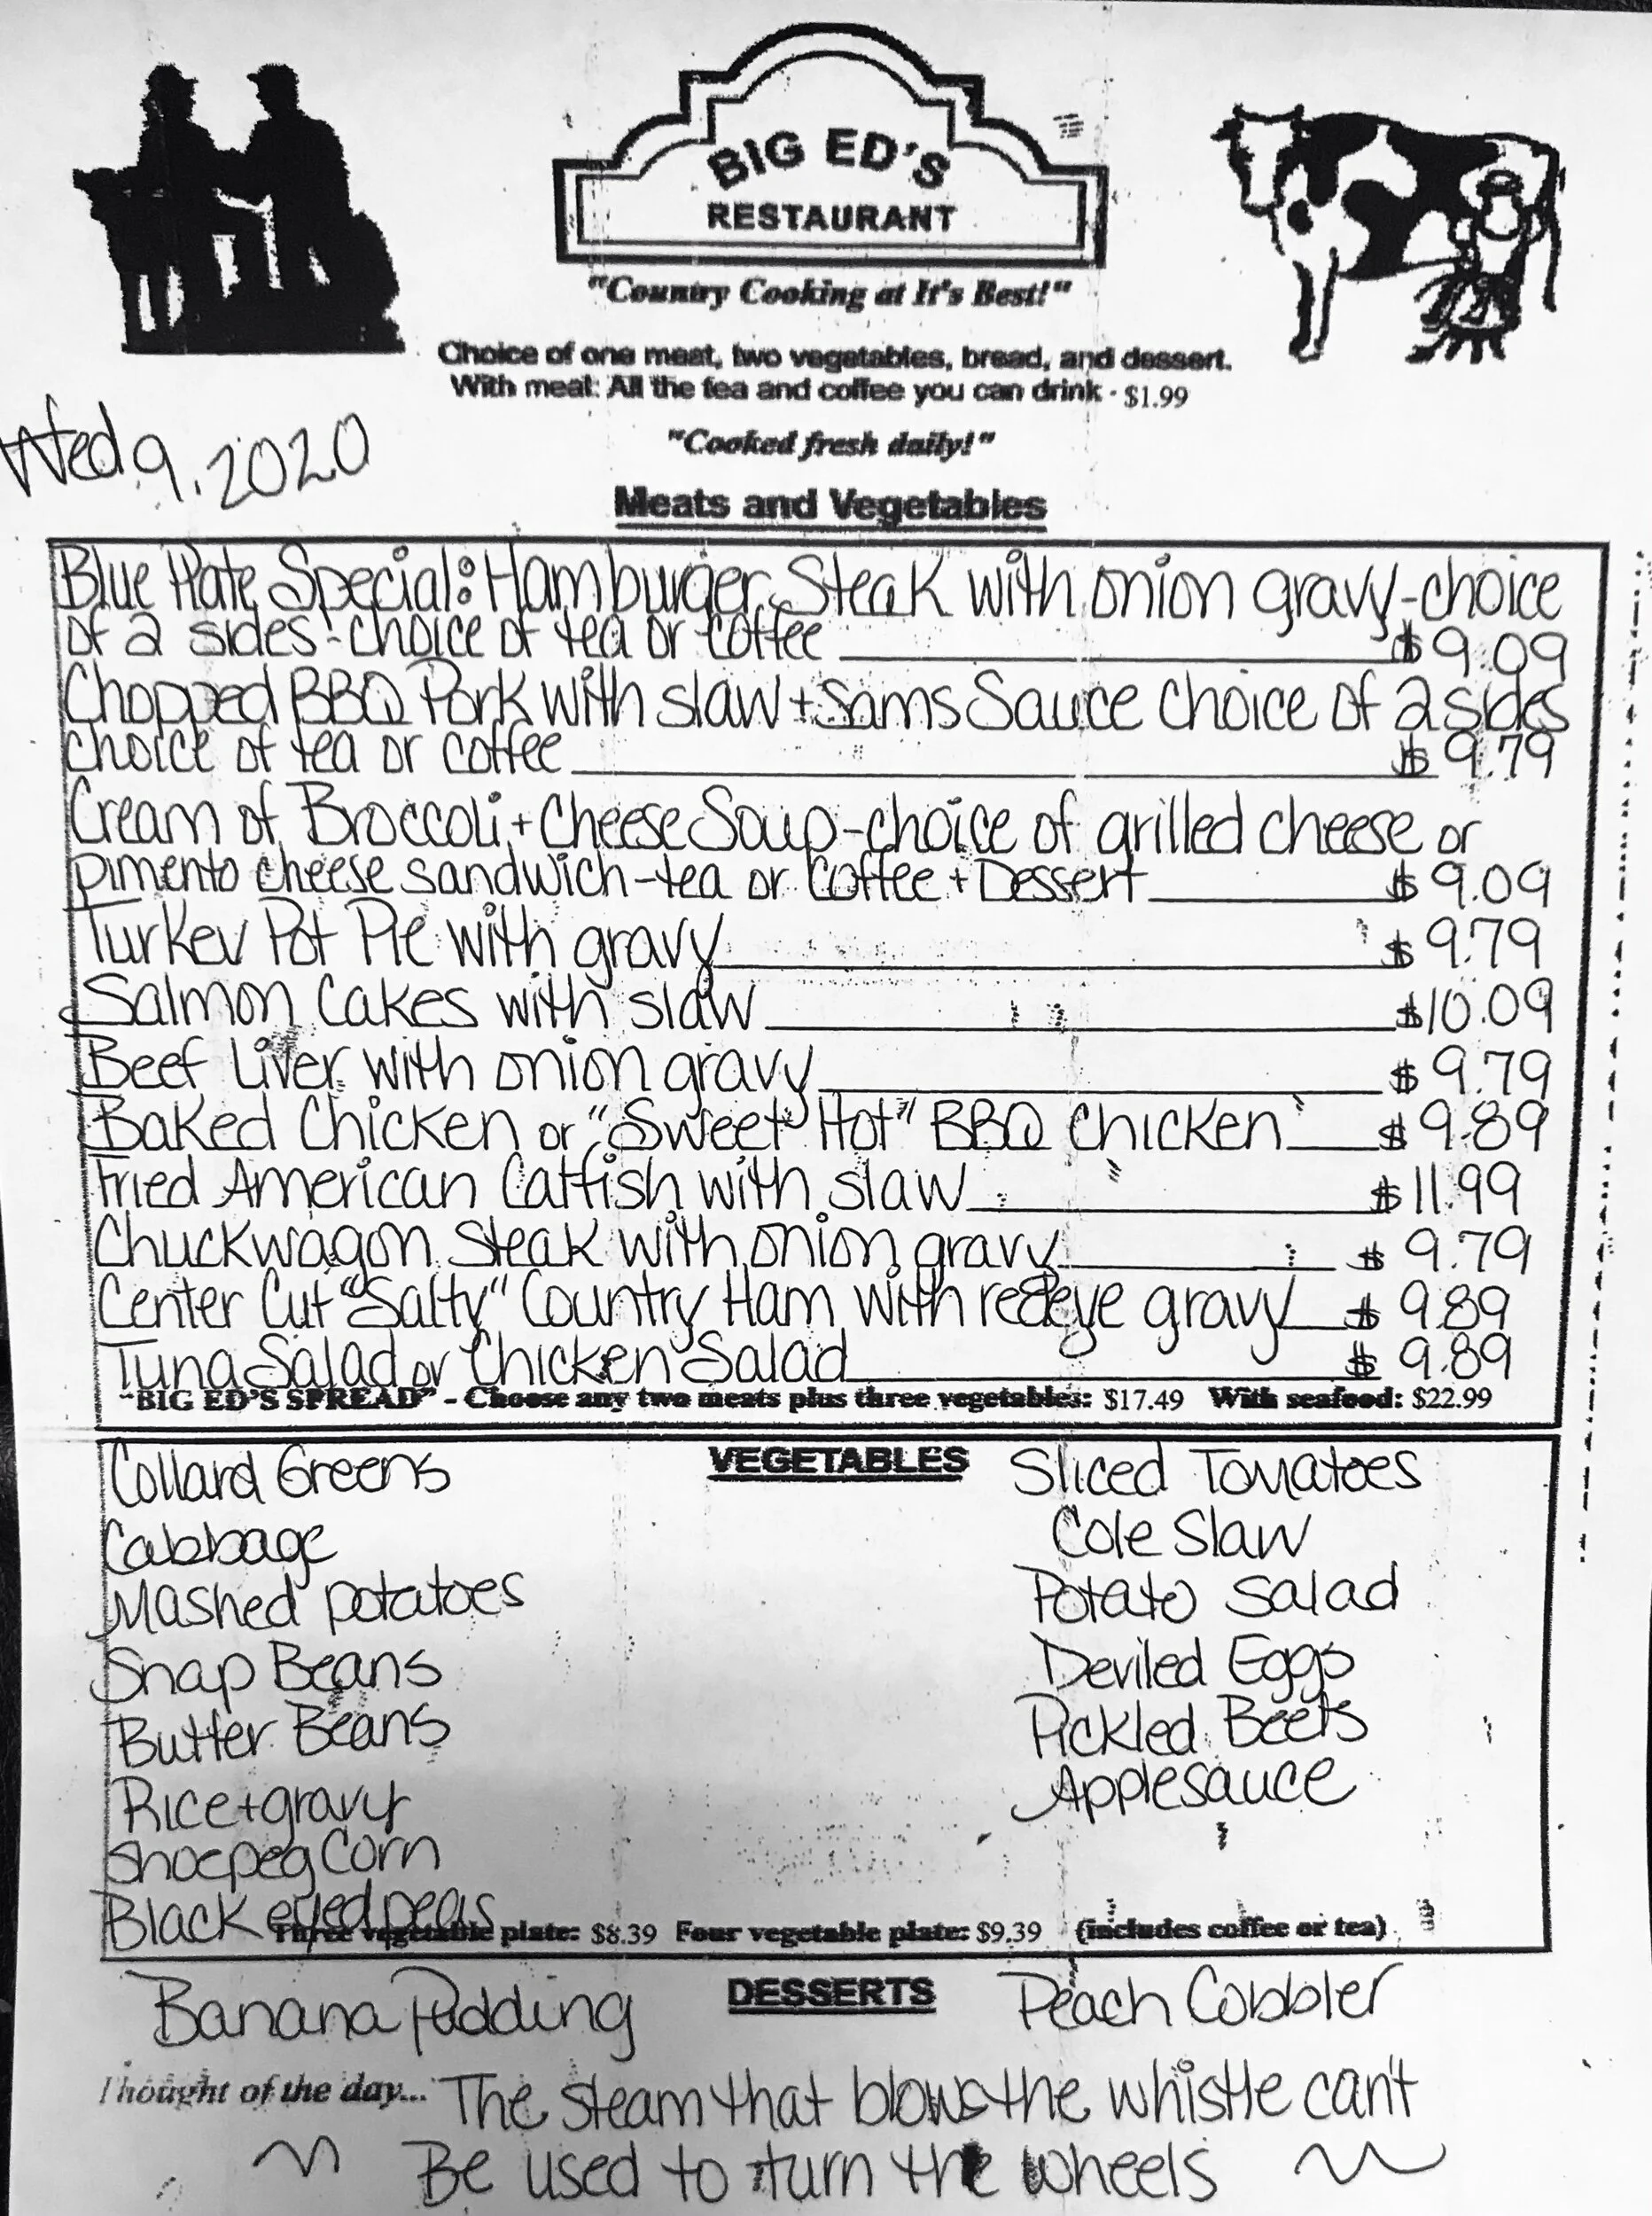 BIG ED'S
RESTAURANT
"Country Cooking at It's Best!"
Choice of one meat, two vegetables, bread, and dessert.
With meal: All the tea and coffee you can drink - $1.99
Wed 9, 2020
"Cooked fresh daily!"
Meats and Vegetables
Blue Plate Special: Hamburger Steak with onion gravy-choice
of 2 sides-choice of tea or coffee $9.09
Chopped BBQ Pork with slaw + Sams Sauce choice of 2 sides
choice of tea or coffee $9.79
Cream of Broccoli + Cheese Soup-choice of grilled cheese or
pimento cheese sandwich-tea or Coffee + Dessert $9.09
Turkey Pot Pie with gravy $9.79
Salmon Cakes with slaw $10.09
Beef Liver with onion gravy $9.79
Baked Chicken or "Sweet Hot" BBQ Chicken $9.89
Fried American Catfish with slaw $11.99
Chuckwagon Steak with onion gravy $9.79
Center Cut "Salty" Country Ham with redeye gravy $9.89
Tuna Salad or Chicken Salad $9.89
"BIG ED'S SPREAD" - Choose any two meats plus three vegetables: $17.49 With seafood: $22.99
VEGETABLES
Collard Greens
Cabbage
Mashed potatoes
Snap Beans
Butter Beans
Rice + gravy
Shoepeg Corn
Black eyed peas
Sliced Tomatoes
Cole Slaw
Potato Salad
Deviled Eggs
Pickled Beets
Applesauce
Three vegetable plate: $8.39 Four vegetable plate: $9.39 (includes coffee or tea)
DESSERTS
Banana Pudding
Peach Cobbler
Thought of the day... The steam that blows the whistle can't
Be used to turn the wheels